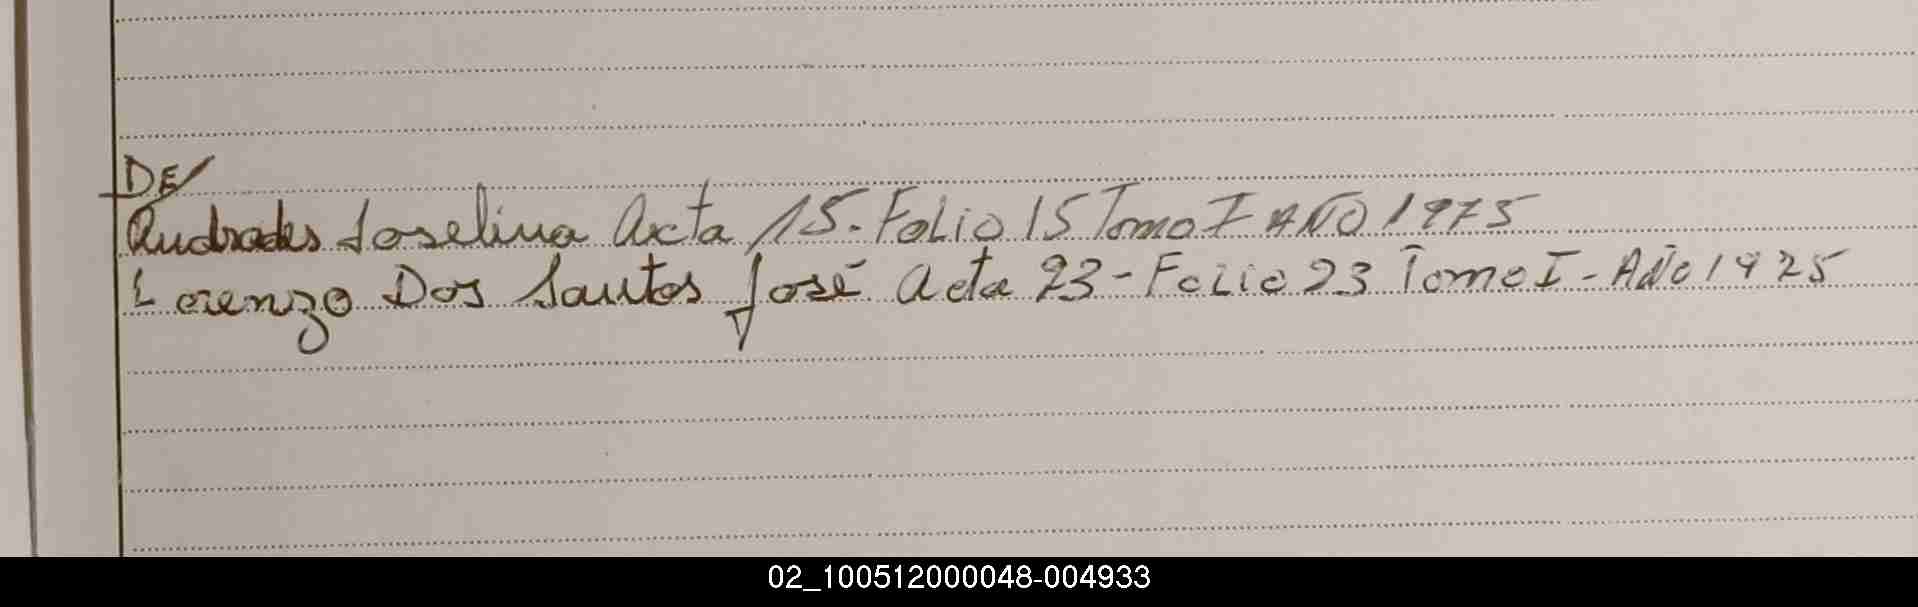 DE/
Andrades Joselina Acta 15. Folio 15 Tomo I AÑO 1975
Lorenzo Dos Santos José Acta 23 - Folio 23 Tomo I - AÑO 1925
02_100512000048-004933